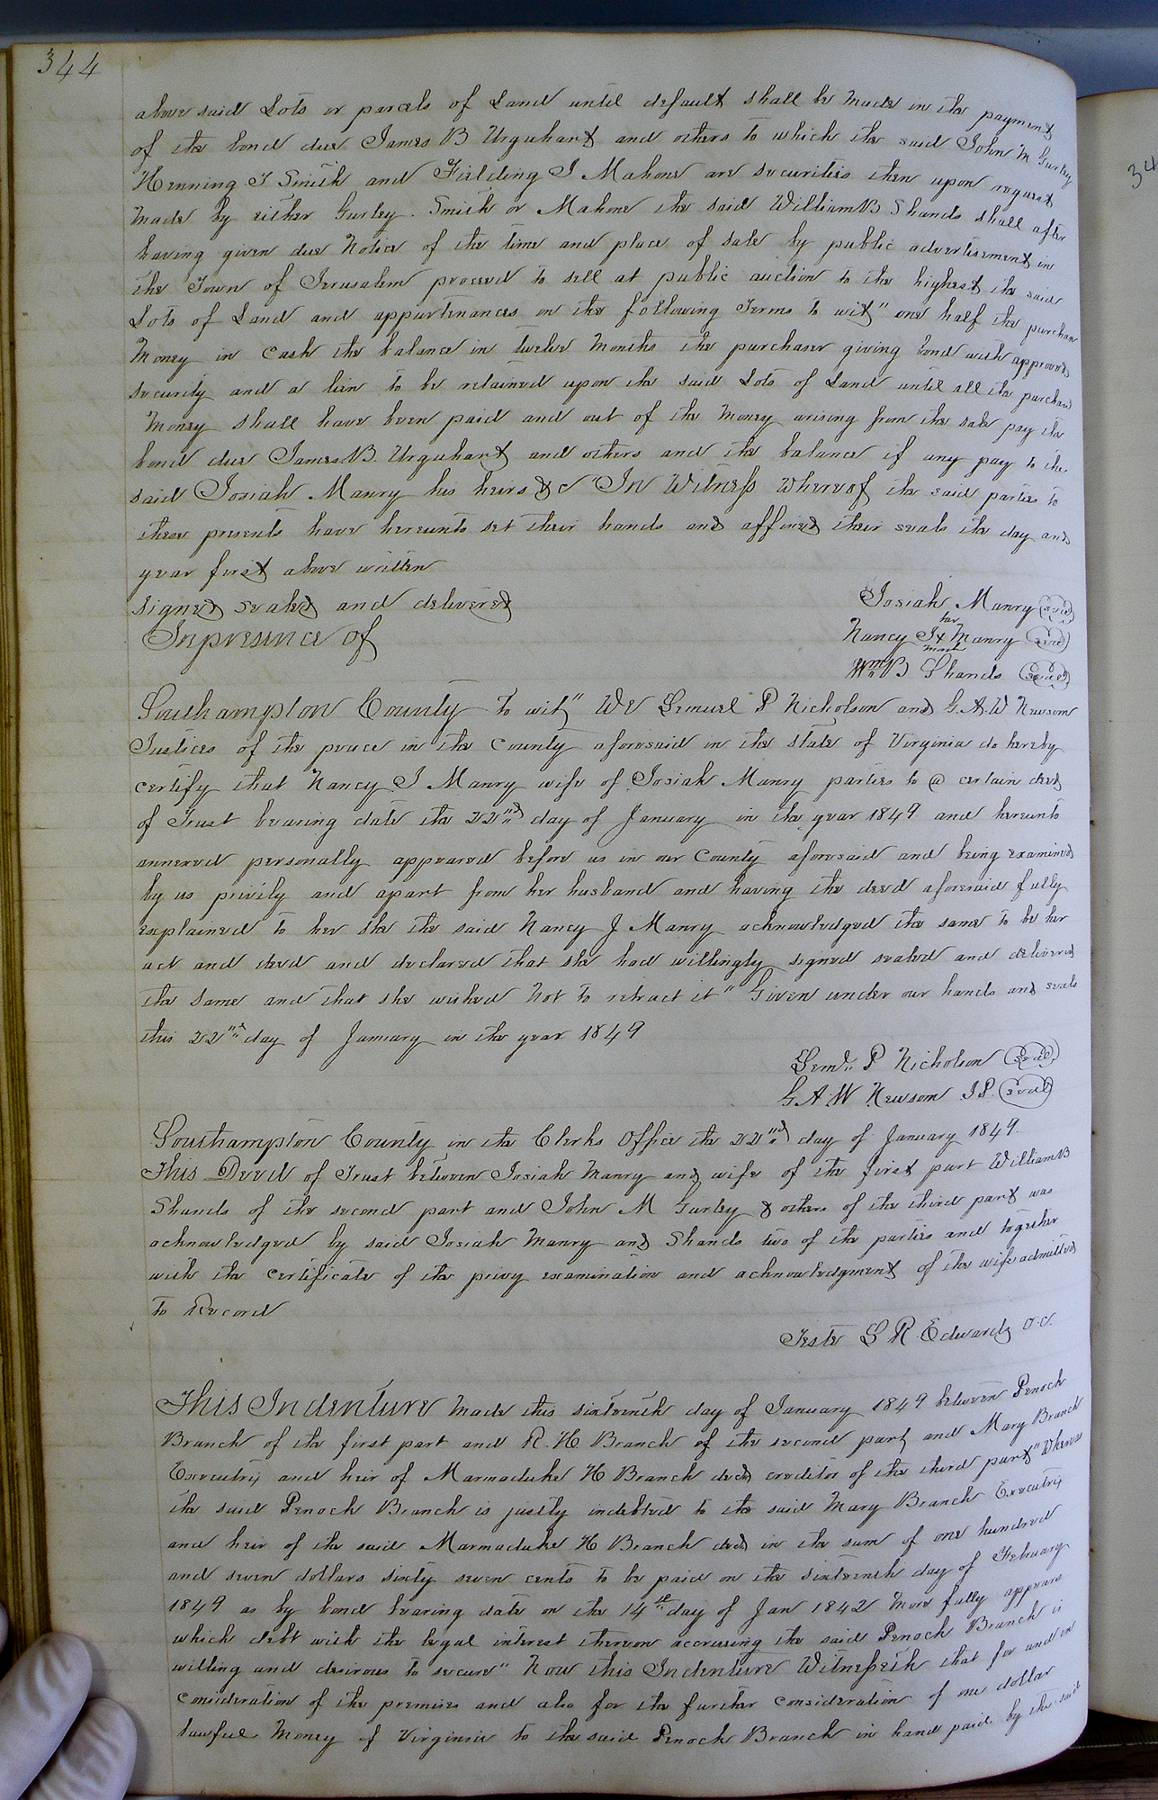 344
above said Lots or parcels of Land until default shall be made in the payment
of the bond due James B Urquhart and others to which the said John M Gurley
Henning T Smith and Fielding J Mahone are securities then upon request
made by either Gurley. Smith or Mahone the said William B Shands shall after
having given due Notice of the time and place of sale by public advertisement in
the Town of Jerusalem proceed to sell at public auction to the highest the said
Lots of Land and appurtenances on the following Terms to wit" one half the purchase
Money in Cash the balance in twelve Months the purchaser giving bond with approved
security and a lien to be retained upon the said Lots of Land until all the purchase
Money shall have been paid and out of the Money arising from the sale pay the
bond due James B. Urquhart and others and the balance if any pay to the
said Josiah Manry his heirs &c In Witness Whereof the said parties to
these presents have hereunto set their hands and affixed their seals the day and
year first above written
Signed sealed and delivered
In presence of
Josiah Manry (seal)
her
Nancy J x Manry (seal)
mark
Wm B Shands (seal)
Southampton County To wit" We Lemuel P Nicholson and G. A. W Newsom
Justices of the peace in the County aforesaid in the State of Virginia do hereby
certify that Nancy J Manry wife of Josiah Manry parties to a certain deed
of Trust bearing date the 22nd day of January in the year 1849 and hereunto
annexed personally appeared before us in our County aforesaid and being examined
by us privily and apart from her husband and having the deed aforesaid fully
explained to her she the said Nancy J Manry acknowledged the same to be her
act and deed and declared that she had willingly signed sealed and delivered
the same and that she wished not to retract it" Given under our hands and seals
this 22nd day of January in the year 1849
Leml. P Nicholson (seal)
G A W Newsom J.P. (seal)
Southampton County in the Clerks Office the 22nd day of January 1849.
This Deed of Trust between Josiah Manry and wife of the first part William B
Shands of the second part and John M Gurley & others of the third part was
acknowledged by said Josiah Manry and Shands two of the parties and together
with the certificate of the privy examination and acknowledgment of the wife admitted
to Record
Teste L R Edwards
This Indenture Made this sixteenth day of January 1849 between Penoch
Branch of the first part and R. H Branch of the second part and Mary Branch
Executrix and heir of Marmaduke H Branch decd creditor of the third part" Whereas
the said Penoch Branch is justly indebted to the said Mary Branch Executrix
and heir of the said Marmaduke H Branch decd in the sum of one hundred
and seven dollars sixty seven cents to be paid on the sixteenth day of February
1849 as by bond bearing date on the 14th day of Jan 1842 More fully appears
which debt with the legal interest thereon accruing the said Penoch Branch is
willing and desirous to secure" Now this Indenture Witnesseth that for and in
consideration of the premises and also for the further consideration of one dollar
lawful Money of Virginia to the said Penoch Branch in hand paid by the said
34